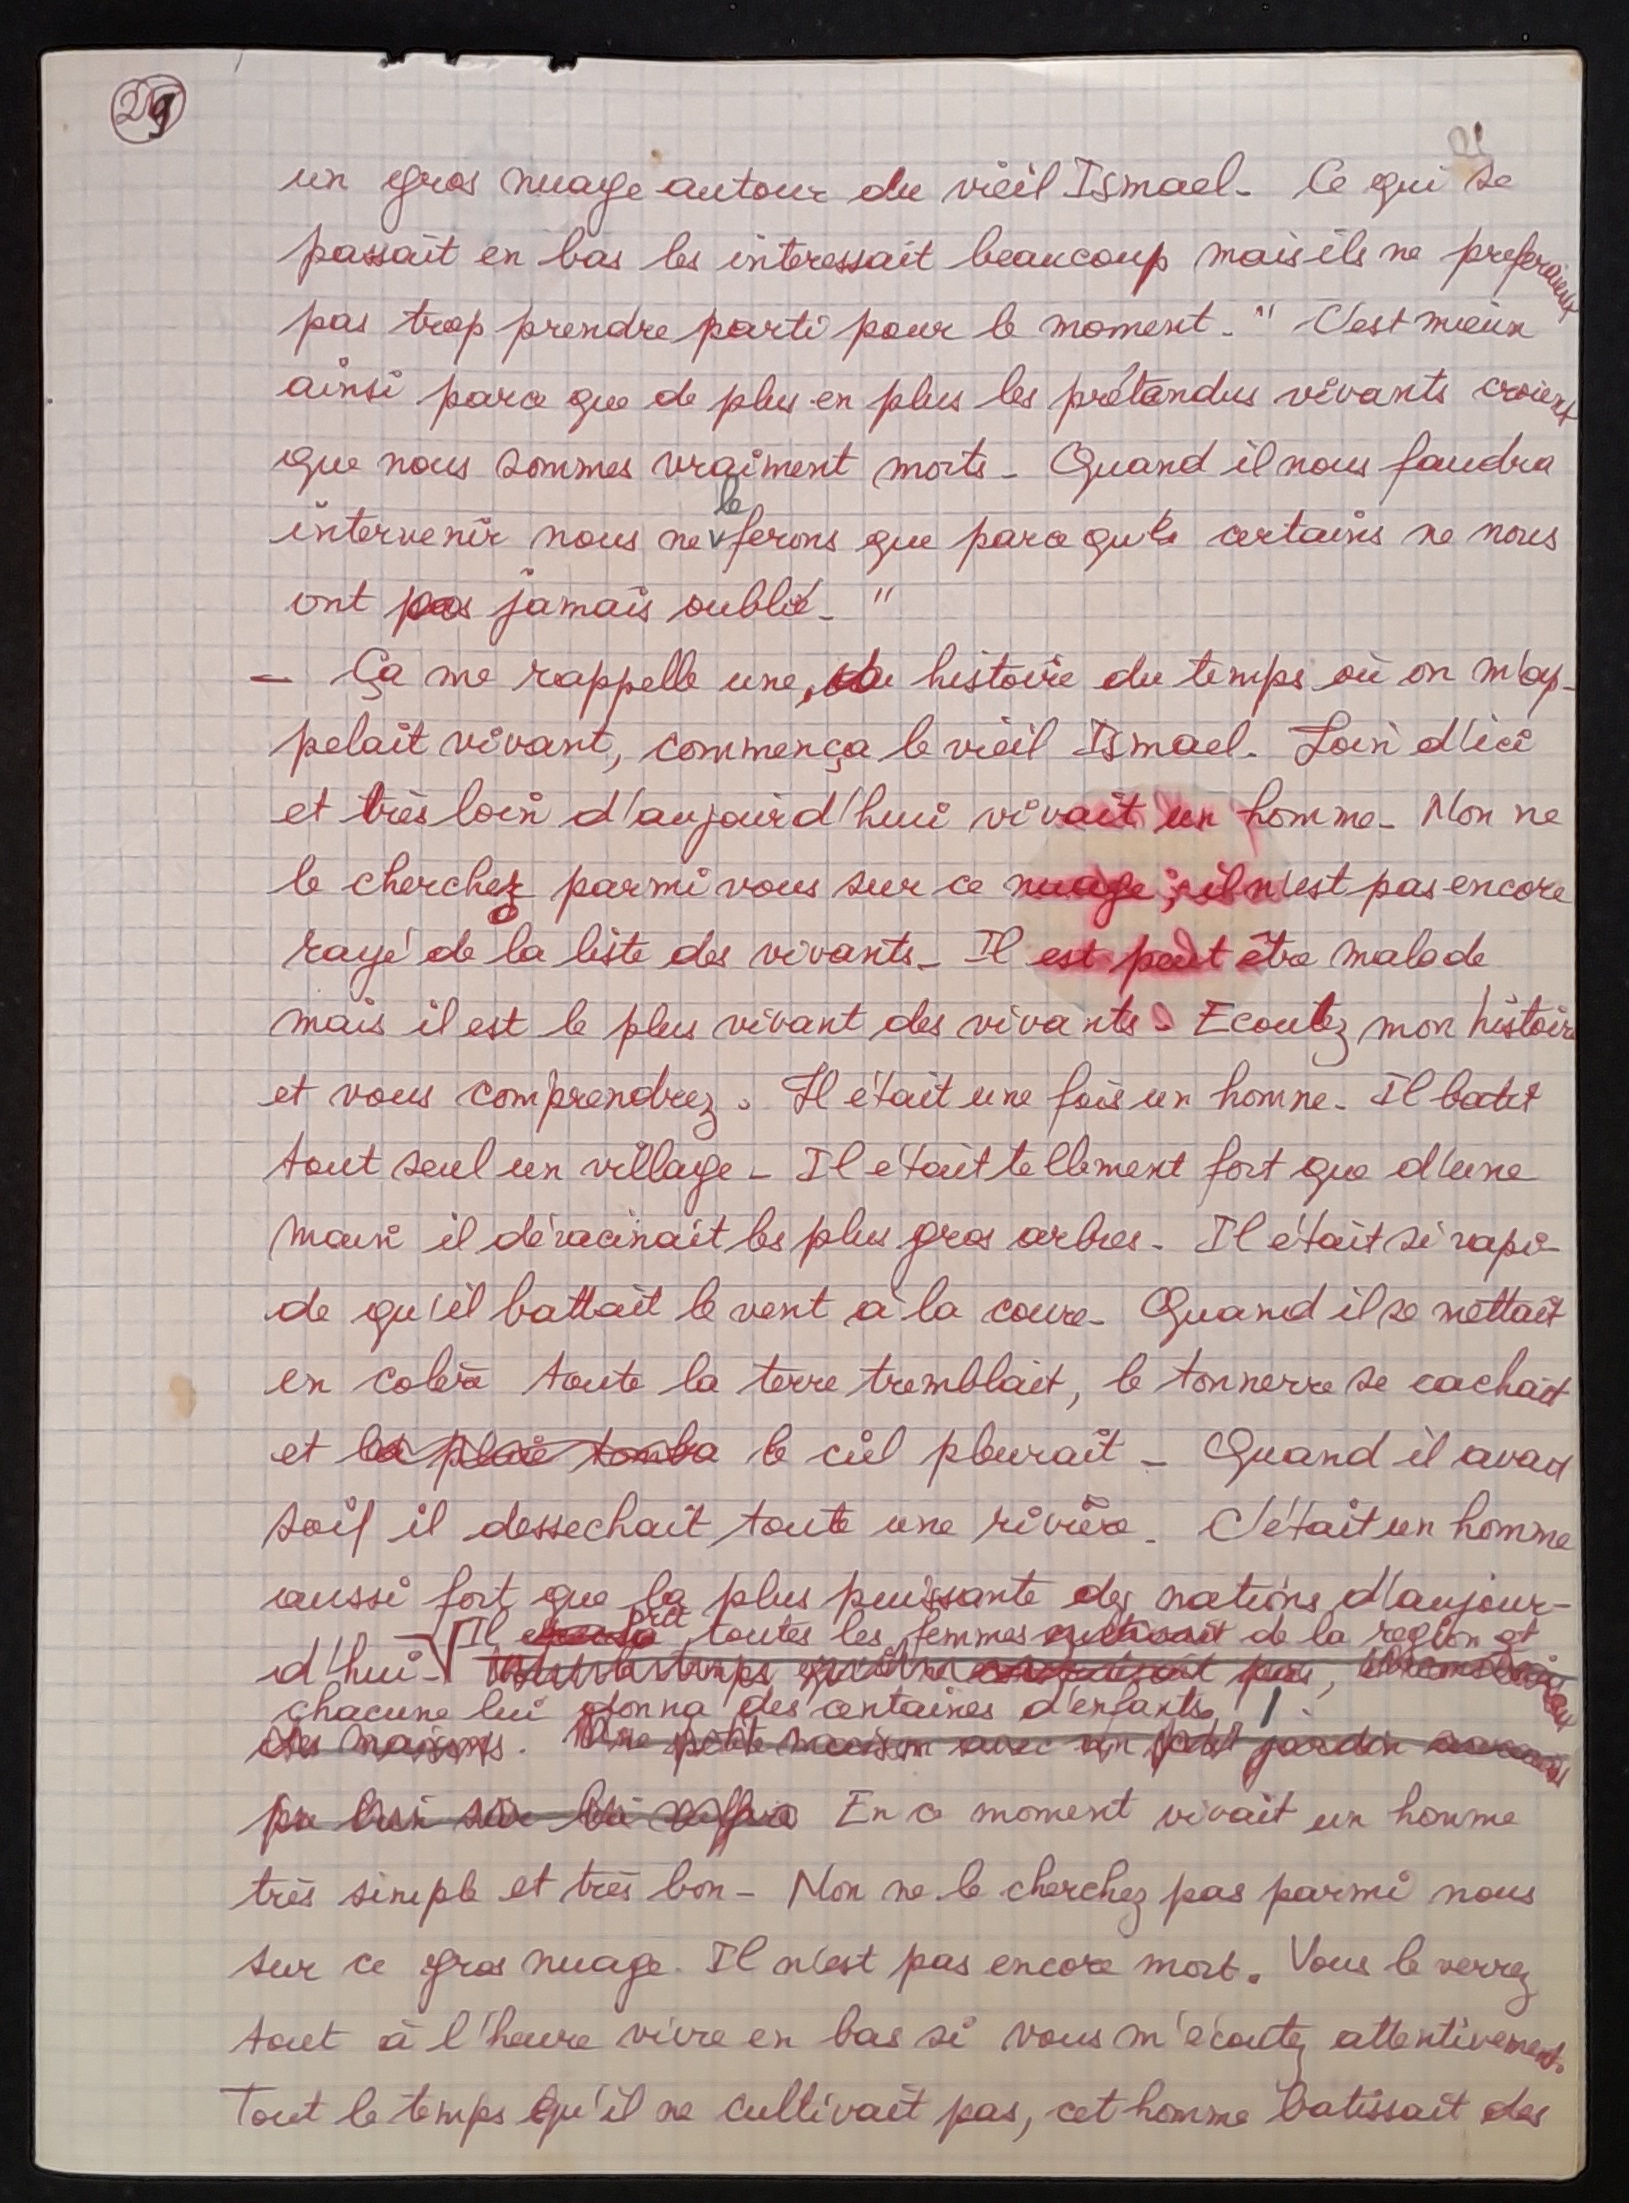 29
un gros nuage autour du vieil Ismael. Ce qui se
passait en bas les interessait beaucoup mais ils ne preferaient
pas trop prendre parti pour le moment. " C'est mieux
ainsi parce que de plus en plus les prétendus vivants croient
que nous sommes vraiment morts. Quand il nous faudra
le
intervenir nous ne ferons que parce que certains ne nous
ont pas jamais oublié. "
— Ça me rappelle une histoire du temps où on m'ap-
pelait vivant, commença le vieil Ismael. Loin d'ici
et très loin d'aujourd'hui vivait un homme. Non ne
le cherchez parmi vous sur ce nuage ; il n'est pas encore
rayé de la liste des vivants. Il est peut être malade
mais il est le plus vivant des vivants. Ecoutez mon histoire
et vous comprendrez. Il était une fois un homme. Il batit
tout seul un village. Il était tellement fort que d'une
main il déracinait les plus gros arbres. Il était si rapi-
de qu'il battait le vent à la course. Quand il se mettait
en colère toute la terre tremblait, le tonnerre se cachait
et la pluie tomba le ciel pleurait. Quand il avait
soif il dessechait toute une rivière. C'était un homme
aussi fort que la plus puissante des nations d'aujour-
Il prit toutes les femmes de la region et
d'hui. temps qu'il ne pas,
chacune lui donna des centaines d'enfants.
des maisons. Une petite maison avec un petit jardin
En ce moment vivait un homme
très simple et très bon. Non ne le cherchez pas parmi nous
sur ce gros nuage. Il n'est pas encore mort. Vous le verrez
tout à l'heure vivre en bas si vous m'écoutez attentivement.
Tout le temps qu'il ne cultivait pas, cet homme batissait des